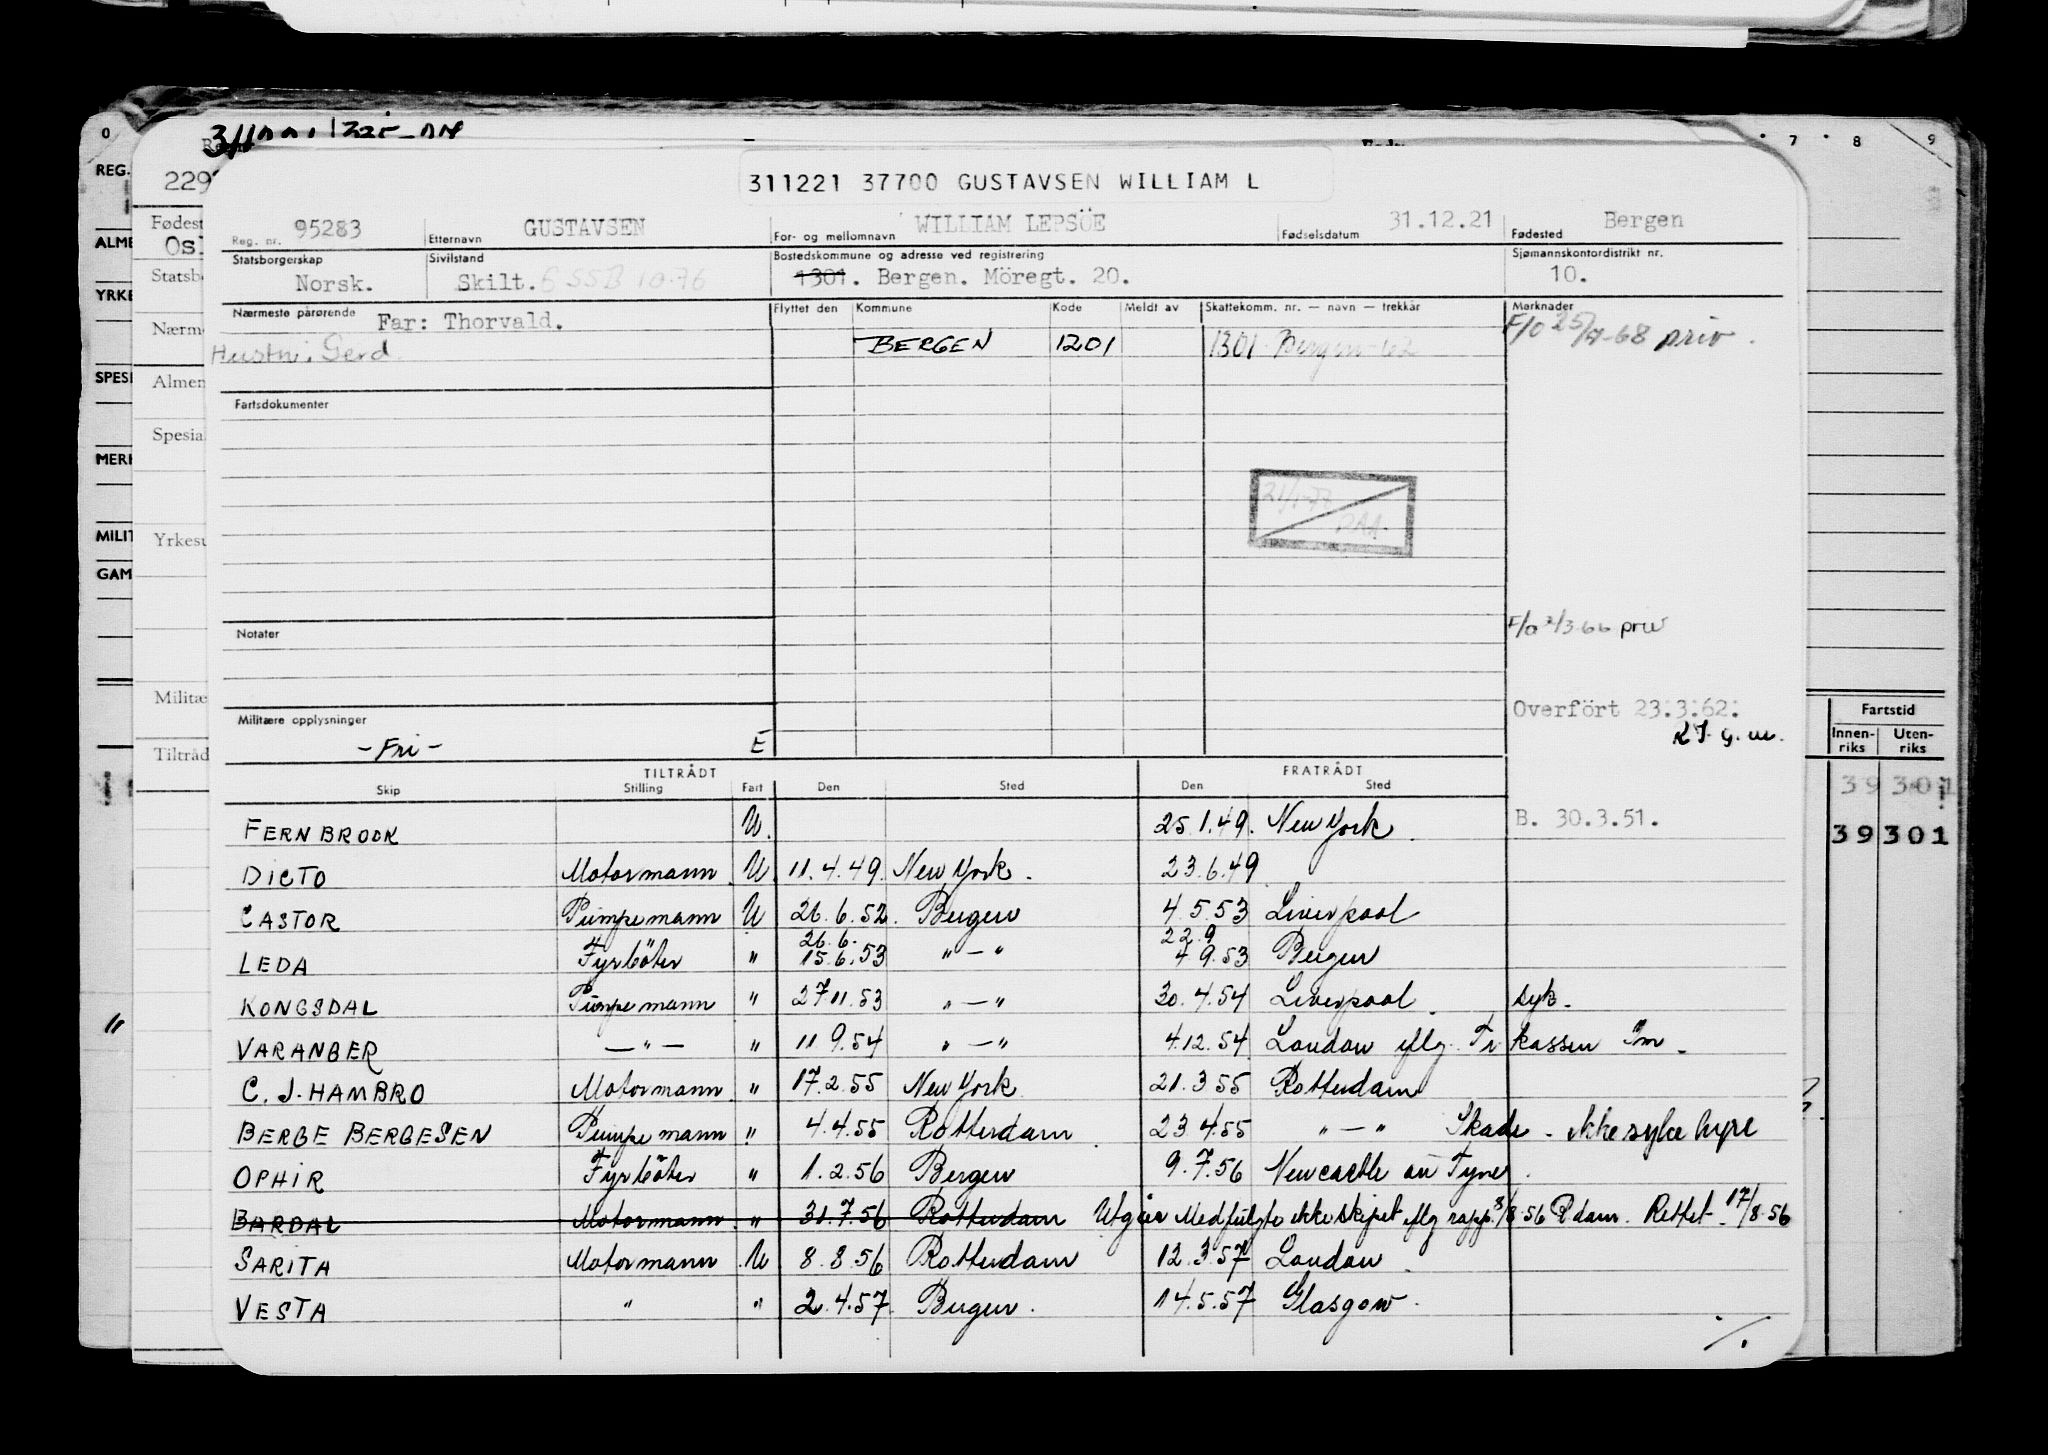 0 7 8 9
REG.
229
311221 37700 GUSTAVSEN WILLIAM L
Reg. nr. 95283 Etternavn GUSTAVSEN For- og mellomnavn WILLIAM LEPSÖE Fødselsdatum 31.12.21 Fødested Bergen
Statsborgerskap Norsk. Sivilstand Skilt. Bostedskommune og adresse ved registrering 1301. Bergen. Möregt. 20. Sjømannskontordistrikt nr. 10.
Nærmeste pårørende Far: Thorvald. Flyttet den Kommune Kode Meldt av Skattekomm. nr. — navn — trekkår Merknader
Hustru: Gerd BERGEN 1201 1301 Bergen -62 F/o 25/9-68 priv.
Fartsdokumenter
21/1-77
Notater
F/o 2/3-66 priv
Overfört 23.3.62.
Militære opplysninger
-Fri- E
TILTRÅDT FRATRÅDT
Skip Stilling Fart Den Sted Den Sted
FERNBROOK U. 25.1.49. New York. B. 30.3.51.
DICTO Motormann U. 11.4.49. New York. 23.6.49
CASTOR Pumpemann U 26.6.52. Bergen 4.5.53 Liverpool
26.6. 22.9
LEDA Fyrböter " 15.6.53 "—" 4 9.53 Bergen
KONGSDAL Pumpemann " 27 11.53 "—" 30.4.54 Liverpool. syk.
VARANGER —"— " 11 9.54 "—" 4.12.54 London iflg. Tr. kassen
C. J. HAMBRO Motormann " 17.2.55 New York 21.3 55 Rotterdam
BERGE BERGESEN Pumpemann " 4.4.55 Rotterdam 23 4.55 "—" Skade - ikke syke hyre
OPHIR Fyrböter " 1.2.56 Bergen 9.7.56 Newcastle on Tyne.
BARDAL Motormann " 31.7.56 Rotterdam Utgår Medfulgte ikke skipet iflg rapp. 8/8 56 R dam. Rettet 17/8-56
SARITA Motormann U 8.8.56 Rotterdam 12.3.57 London.
VESTA " " 2.4.57 Bergen. 14.5.57 Glasgow.
·/.
Fødest
Osl
Statsbo
Nærm
Almen
Spesial
Yrkesu
Militæ
Tiltråd
ALME
YRKE
SPESI
MERK
MILIT
GAM
"
Fartstid
Innen-riks Uten-riks
39 301
39 301